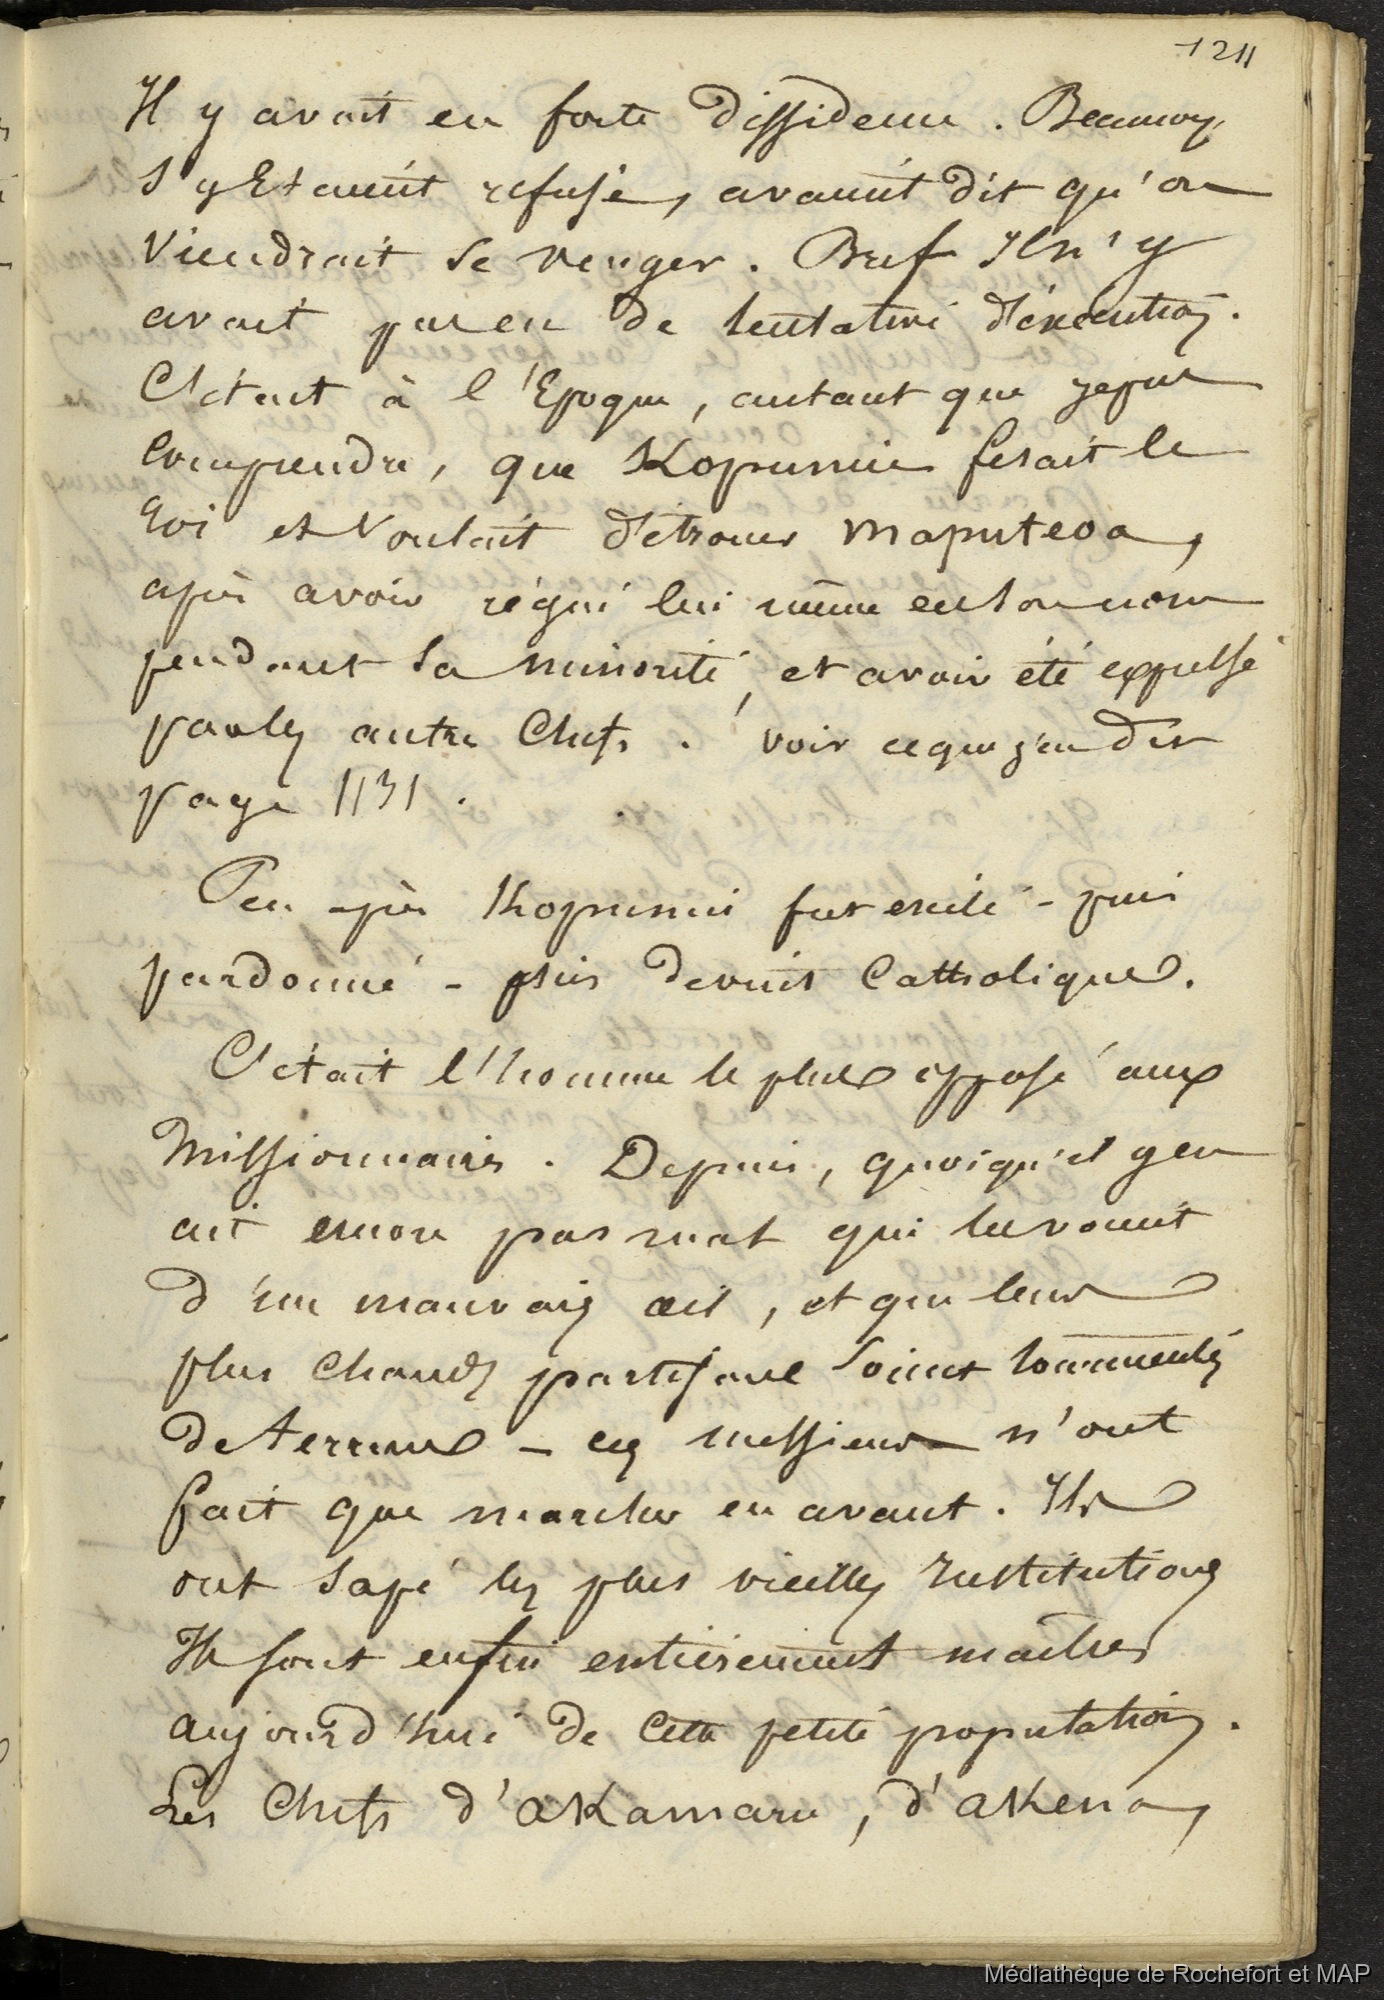 1211
Il y avait eu forte dissidence. Beaucoup
s'y Etaient refusé, avaient dit qu'on
viendrait se venger. Bref Il n'y
avait pas eu de tentative d'éxécution.
C'était à l'Epoque, autant que je pus
comprendre, que Kopunui fesait le
Roi et Voulait détroner Maputeoa,
après avoir régné lui même en son nom
pendant sa minorité, et avoir été expulsé
par les autres Chefs. voir ce que j'en dis
page 1131.
Peu après Kopunui fut exilé - puis
pardonné - puis devint Catholique.
C'était l'homme le plus opposé aux
Missionnaires. Depuis, quoiqu'il y en
ait encore pas mal qui les voient
d'un mauvais œil, et que leurs
plus chauds partisans soient tourmentés
de terreurs - ces messieurs n'ont
fait que marcher en avant. Ils
ont sapé les plus vieilles Institutions
Ils sont enfin entièrement maîtres
aujourd'hui de cette petite population.
Les Chefs d'aKamaru, d'aKena,
Médiathèque de Rochefort et MAP